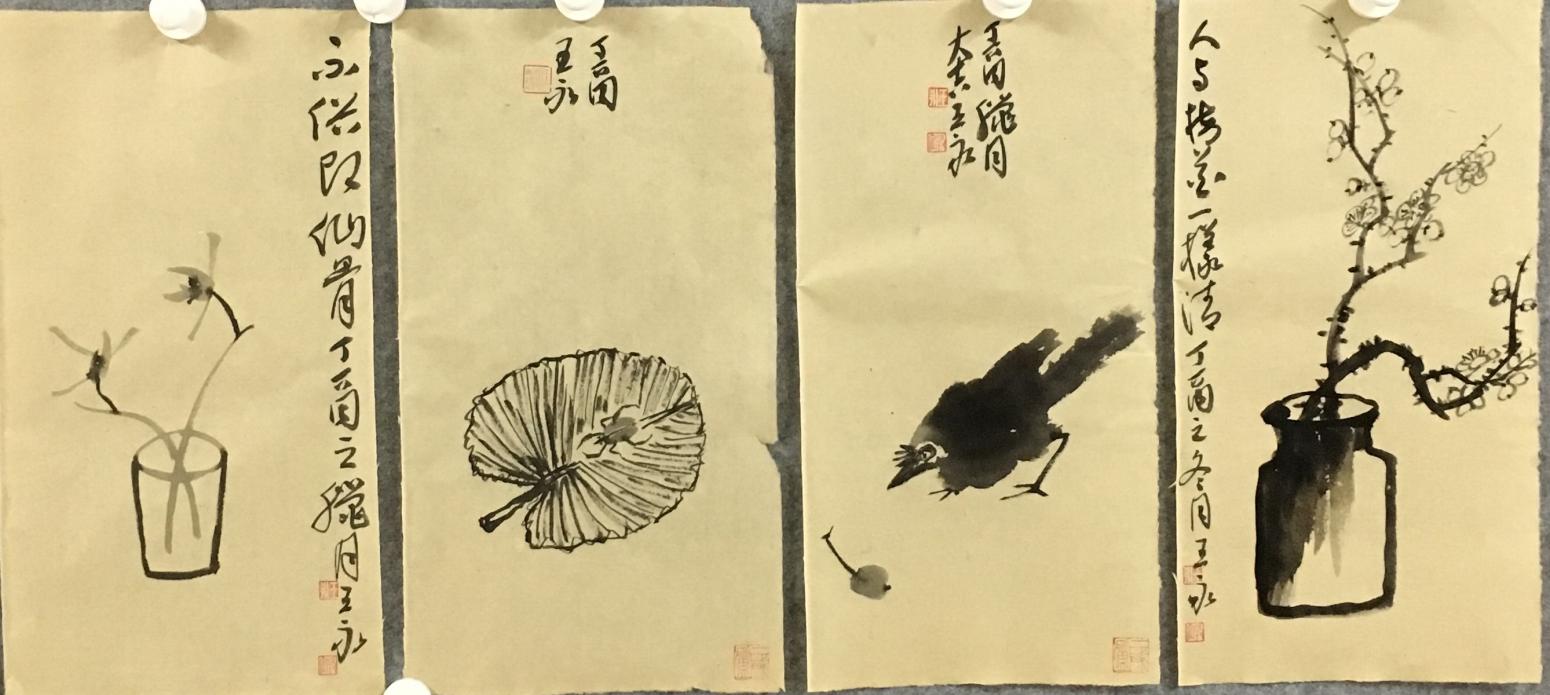 不俗即仙骨丁酉之臘月王永
丁酉
王永
丁酉臘月
大吉王永
人与梅花一樣清丁酉之冬月王永